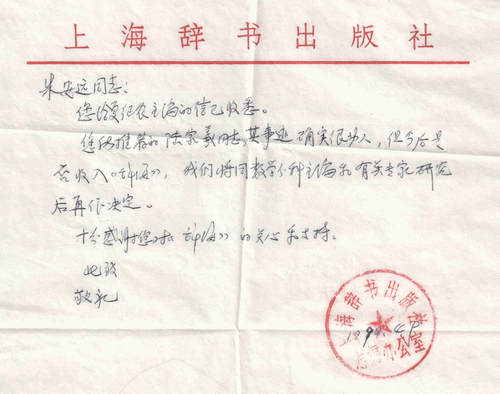 上海辞书出版社
朱安远同志：
您给夏征农主编的信已收悉。
您所推荐的陆家羲同志，其事迹确实很动人，但今后是
否收入《辞海》，我们将同数学分科主编和有关专家研究
后再作决定。
十分感谢您对《辞海》的关心和支持。
此致
敬礼
上海辞书出版社
办公室